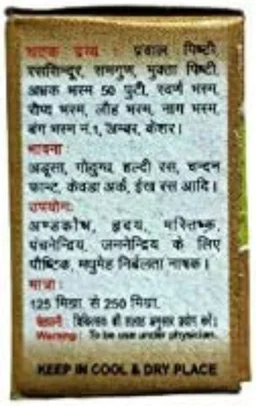 घटक द्रव्य : प्रवाल पिष्टी,
रससिन्दुर, समगुण, मुक्ता पिष्टी,
अभ्रक भस्म 50 पुटी, स्वर्ण भस्म,
रौप्य भस्म, लौह भस्म, नाग भस्म,
बंग भस्म नं.1, अम्बर, केशर।
भावना :
अडूसा, गोदुग्ध, हल्दी रस, चन्दन
फान्ट, केवडा अर्क, ईख रस आदि।
उपयोग:
अण्डकोष, हृदय, मस्तिष्क,
पंचनेन्द्रिय, जननेन्द्रिय के लिए
पौष्टिक, मधुमेह निर्बलता नाषक।
मात्रा :
125 मिग्रा. से 250 मिग्रा.
चेतावनी : चिकित्सक की सलाह अनुसार प्रयोग करें।
Warning : To be use under physician.
KEEP IN COOL & DRY PLACE